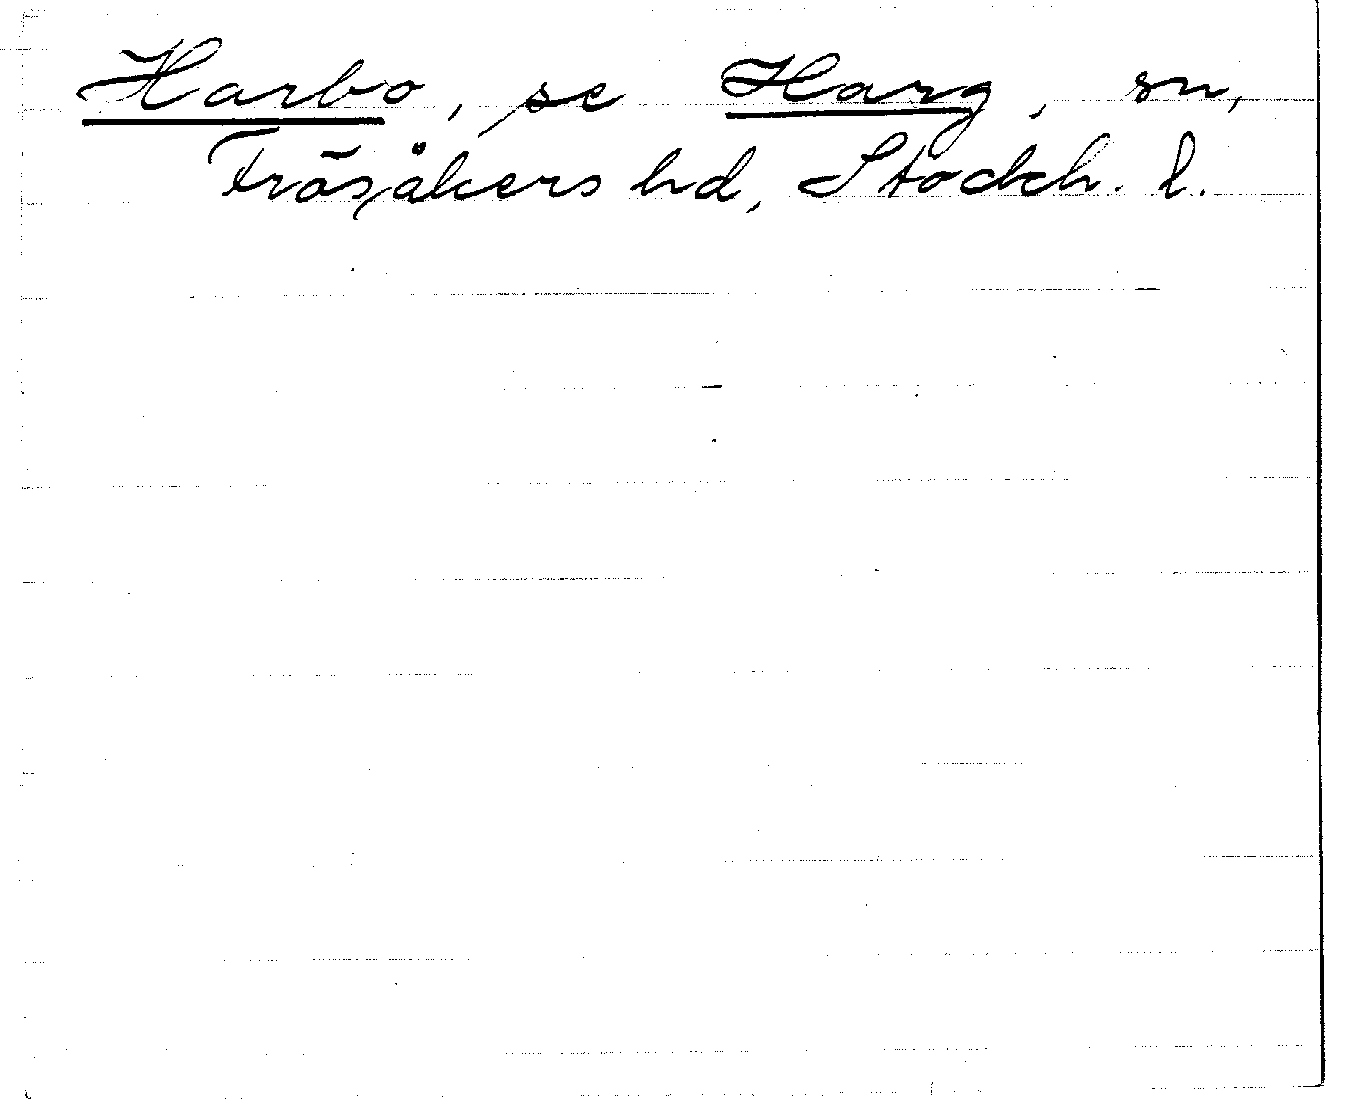 Harbo, se Harg, sn,
Frösåkers hd, Stockh. l.